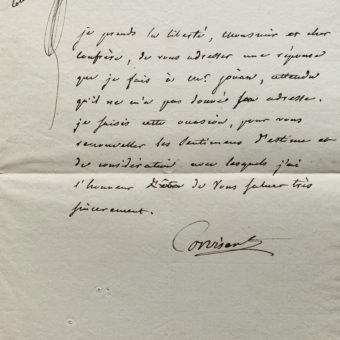 je prends la liberté, Monsieur et cher
Confrère, de vous adresser une réponse
que je fais à mr. jouan, attendu
qu'il ne m'a pas donné son adresse.
je saisis cette occasion, pour vous
renouveller les sentimens d'estime et
de considération avec lesquels j'ai
l'honneur de vous saluer très
sincerement.
Corvisart